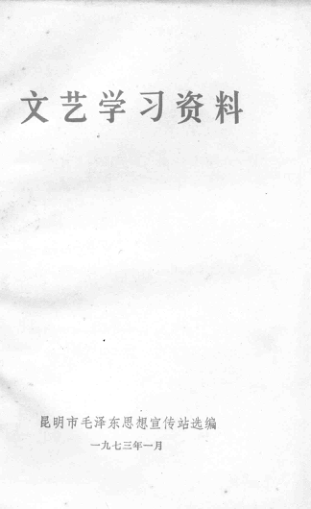 文艺学习资料
昆明市毛泽东思想宣传站选编
一九七三年一月